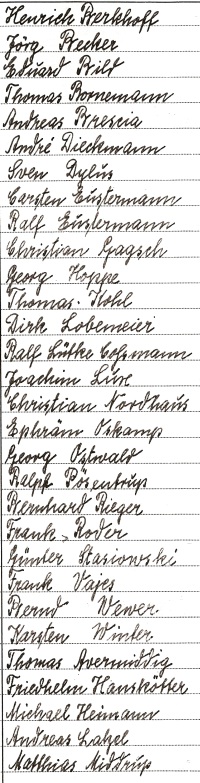 Henrich Berkhoff
Jörg Becher
Eduard Bild
Thomas Bornemann
Andreas Brescia
André Dieckmann
Sven Dylus
Carsten Eustermann
Ralf Eustermann
Christian Gagsch
Georg Hoppe
Thomas Kohl
Dirk Lobemeier
Ralf Lütke Coßmann
Joachim Lüke
Christian Nordhaus
Ephräm Oskamp
Georg Ostwald
Ralph Pösentrup
Bernhard Rieger
Frank Roder
Günter Stasiowski
Frank Vajes
Bernd Wewer
Karsten Winter
Thomas Avermiddig
Friedhelm Hanskötter
Michael Heimann
Andreas Latzel
Matthias Middrup